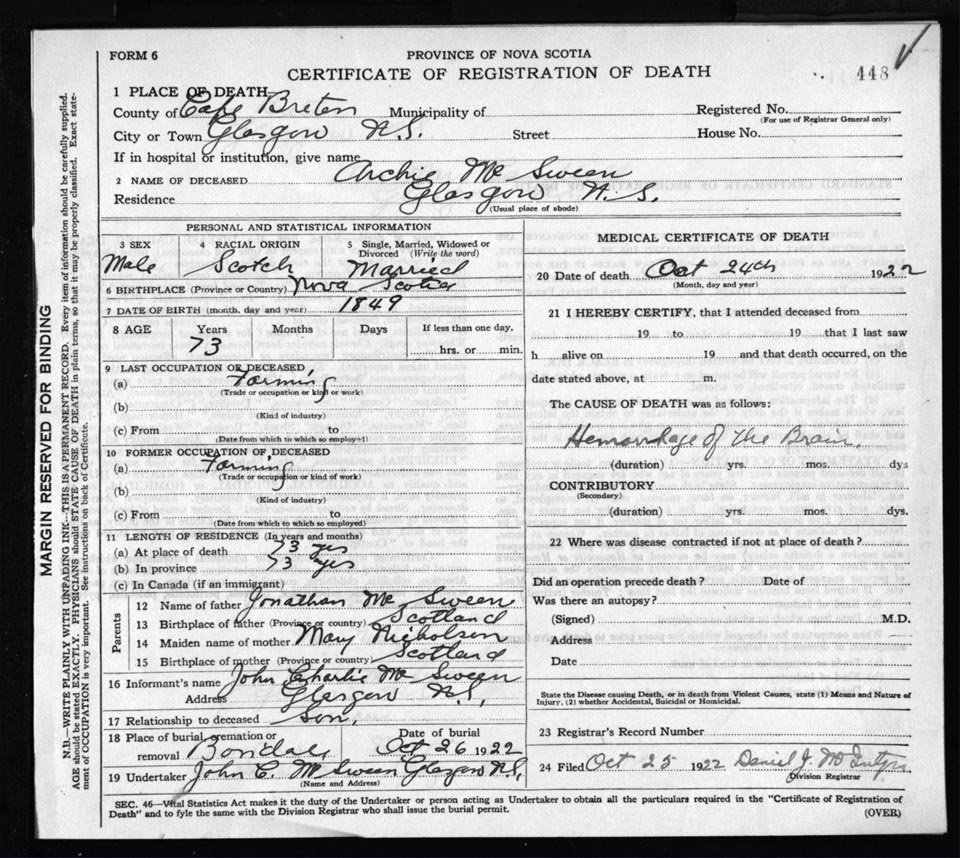 FORM 6
PROVINCE OF NOVA SCOTIA
CERTIFICATE OF REGISTRATION OF DEATH
448
1 PLACE OF DEATH
County of Cape Breton Municipality of Registered No.
(For use of Registrar General only)
City or Town Glasgow N.S. Street House No.
If in hospital or institution, give name
2 NAME OF DECEASED Archie Mc Sween
Residence Glasgow N.S.
(Usual place of abode)
PERSONAL AND STATISTICAL INFORMATION
3 SEX 4 RACIAL ORIGIN 5 Single, Married, Widowed or Divorced (Write the word)
Male Scotch Married
6 BIRTHPLACE (Province or Country) Nova Scotia
7 DATE OF BIRTH (month, day and year) 1849
8 AGE Years Months Days If less than one day,
73 hrs. or min.
9 LAST OCCUPATION OF DECEASED
(a) Farming
(Trade or occupation or kind of work)
(b)
(Kind of industry)
(c) From to
(Date from which to which so employed)
10 FORMER OCCUPATION OF DECEASED
(a) Farming
(Trade or occupation or kind of work)
(b)
(Kind of industry)
(c) From to
(Date from which to which so employed)
11 LENGTH OF RESIDENCE (In years and months)
(a) At place of death 73 yrs
(b) In province 73 yrs
(c) In Canada (if an immigrant)
Parents
12 Name of father Jonathan Mc Sween
13 Birthplace of father (Province or country) Scotland
14 Maiden name of mother Mary Nicholson
15 Birthplace of mother (Province or country) Scotland
16 Informant's name John Charlie Mc Sween
Address Glasgow N.S.
17 Relationship to deceased Son.
18 Place of burial, cremation or removal Date of burial
Oct 26 1922
19 Undertaker John C. Mc Sween Glasgow N.S.
(Name and Address)
MEDICAL CERTIFICATE OF DEATH
20 Date of death Oct 24th 1922
(Month, day and year)
21 I HEREBY CERTIFY, that I attended deceased from
19 to 19 that I last saw
h alive on 19 and that death occurred, on the
date stated above, at m.
The CAUSE OF DEATH was as follows:
Hemorrhage of the Brain.
(duration) yrs. mos. dys
CONTRIBUTORY
(Secondary)
(duration) yrs. mos. dys.
22 Where was disease contracted if not at place of death?
Did an operation precede death? Date of
Was there an autopsy?
(Signed) M.D.
Address
Date
State the Disease causing Death, or in death from Violent Causes, state (1) Means and Nature of
Injury, (2) whether Accidental, Suicidal or Homicidal.
23 Registrar's Record Number
24 Filed Oct 25 1922 Daniel J. Mc
Division Registrar
SEC. 46—Vital Statistics Act makes it the duty of the Undertaker or person acting as Undertaker to obtain all the particulars required in the "Certificate of Registration of
Death" and to fyle the same with the Division Registrar who shall issue the burial permit. (OVER)
MARGIN RESERVED FOR BINDING
N.B.—WRITE PLAINLY WITH UNFADING INK—THIS IS A PERMANENT RECORD. Every item of information should be carefully supplied.
AGE should be stated EXACTLY. PHYSICIANS should STATE CAUSE OF DEATH in plain terms, so that it may be properly classified. Exact state-
ment of OCCUPATION is very important. See instructions on back of Certificate.